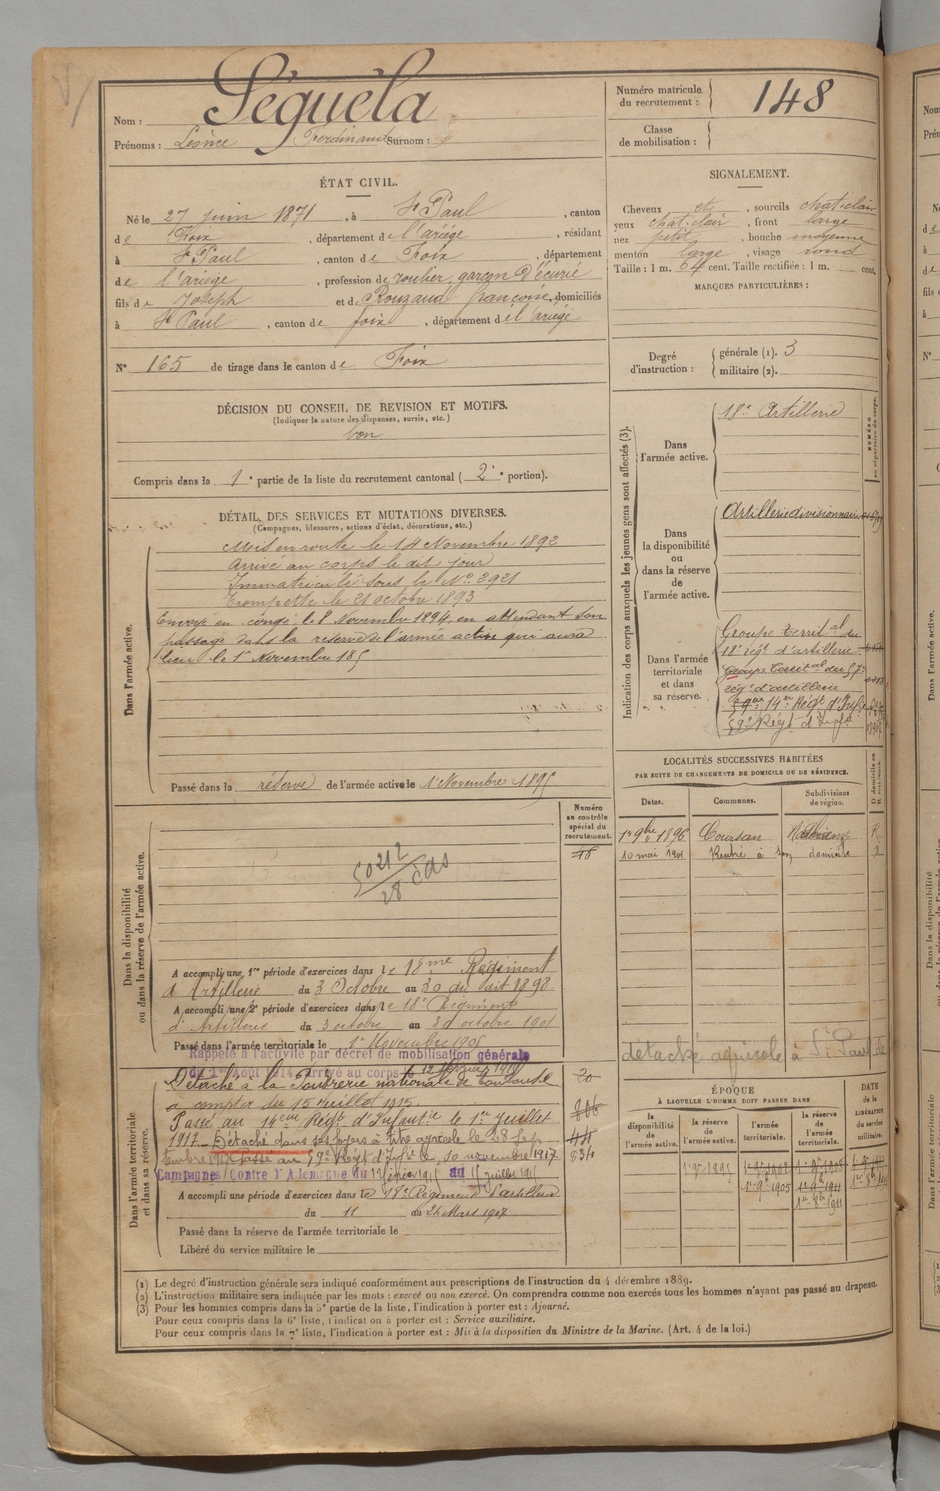 Nom : Séguéla
Prénoms : Ferdinand Surnom :
Numéro matricule du recrutement : 148
Classe de mobilisation :
ÉTAT CIVIL.
Né le 27 juin 1871, à St Paul, canton
de Foix, département de l'ariège, résidant
à St Paul, canton de Foix, département
de l'ariège, profession de roulier, garçon d'écurie
fils de Joseph et de Rouzaud françoise, domiciliés
à St Paul, canton de foix, département de l'ariège
N° 165 de tirage dans le canton de Foix
SIGNALEMENT.
Cheveux et, sourcils chat-clair
yeux chat-clair, front large
nez petit, bouche moyenne
menton large, visage rond
Taille : 1 m. 64 cent. Taille rectifiée : 1 m. cent.
MARQUES PARTICULIÈRES :
Degré d'instruction : générale (1). 3
militaire (2).
DÉCISION DU CONSEIL DE REVISION ET MOTIFS.
(Indiquer la nature des dispenses, sursis, etc.)
bon
Compris dans la 1e partie de la liste du recrutement cantonal ( 2e portion).
DÉTAIL DES SERVICES ET MUTATIONS DIVERSES.
(Campagnes, blessures, actions d'éclat, décorations, etc.)
Dans l'armée active.
Mis en route le 14 Novembre 1892
Arrivé au corps le dit jour
Immatriculé sous le No 2921
Trompette le 21 octobre 1893
Envoyé en congé le 8 Novembre 1894, en attendant son
passage dans la réserve de l'armée active qui aura
lieu le 1er Novembre 189
Passé dans la réserve de l'armée active le 1er Novembre 1895
Indication des corps auxquels les jeunes gens sont affectés (3).
Dans l'armée active.
18e Artillerie
Dans la disponibilité ou dans la réserve de l'armée active.
Artillerie divisionnaire
Dans l'armée territoriale et dans sa réserve.
Groupe territal du
18e rég. d'artillerie
Groupe territal du 57e
rég. d'artillerie
14e Régt d'Inf
59e Régt d'Infie
LOCALITÉS SUCCESSIVES HABITÉES
PAR SUITE DE CHANGEMENTS DE DOMICILE OU DE RÉSIDENCE.
Dates. Communes. Subdivisions de région.
1er 9bre 1896 Coursan Narbonne R
10 mai 1901 Rentre à son domicile
Dans la disponibilité ou dans la réserve de l'armée active.
Numéro au contrôle spécial du recrutement.
50212
28 cas
A accompli une 1re période d'exercices dans le 18me Régiment
d'Artillerie du 3 Octobre au 30 du dit 1898
A accompli une 2e période d'exercices dans le 18e Régiment
d'Artillerie du 3 octobre au 30 octobre 1901
Passé dans l'armée territoriale le 1er Novembre 1905
détaché agricole à St Paul de
Dans l'armée territoriale et dans sa réserve.
Rappelé à l'activité par décret de mobilisation générale
du 1er Août 1914. Arrivé au corps le
Détaché à la Poudrerie nationale de Toulouse
à compter du 15 Juillet 1915.
Passé au 14ème Régt d'Infantie le 1er Juillet
1917 - Détaché dans ses foyers à titre agricole le 28 Sep
tembre 1917 Passé au 59e Régt d'Infie le 10 novembre 1917
Campagnes Contre l'Allemagne du au
A accompli une période d'exercices dans le 18e Régiment d'artillerie
du 11 au 24 Mars 1907
Passé dans la réserve de l'armée territoriale le
Libéré du service militaire le
20
866
44
834
ÉPOQUE
À LAQUELLE L'HOMME DOIT PASSER DANS
la disponibilité de l'armée active. la réserve de l'armée active. l'armée territoriale. la réserve de l'armée territoriale.
DATE de la LIBÉRATION du service militaire.
1er 9bre 1895
1er 9bre 1905
(1) Le degré d'instruction générale sera indiqué conformément aux prescriptions de l'instruction du 4 décembre 1889.
(2) L'instruction militaire sera indiquée par les mots : exercé ou non exercé. On comprendra comme non exercés tous les hommes n'ayant pas passé au drapeau.
(3) Pour les hommes compris dans la 5e partie de la liste, l'indication à porter est : Ajourné.
Pour ceux compris dans la 6e liste, l'indication à porter est : Service auxiliaire.
Pour ceux compris dans la 7e liste, l'indication à porter est : Mis à la disposition du Ministre de la Marine. (Art. 4 de la loi.)